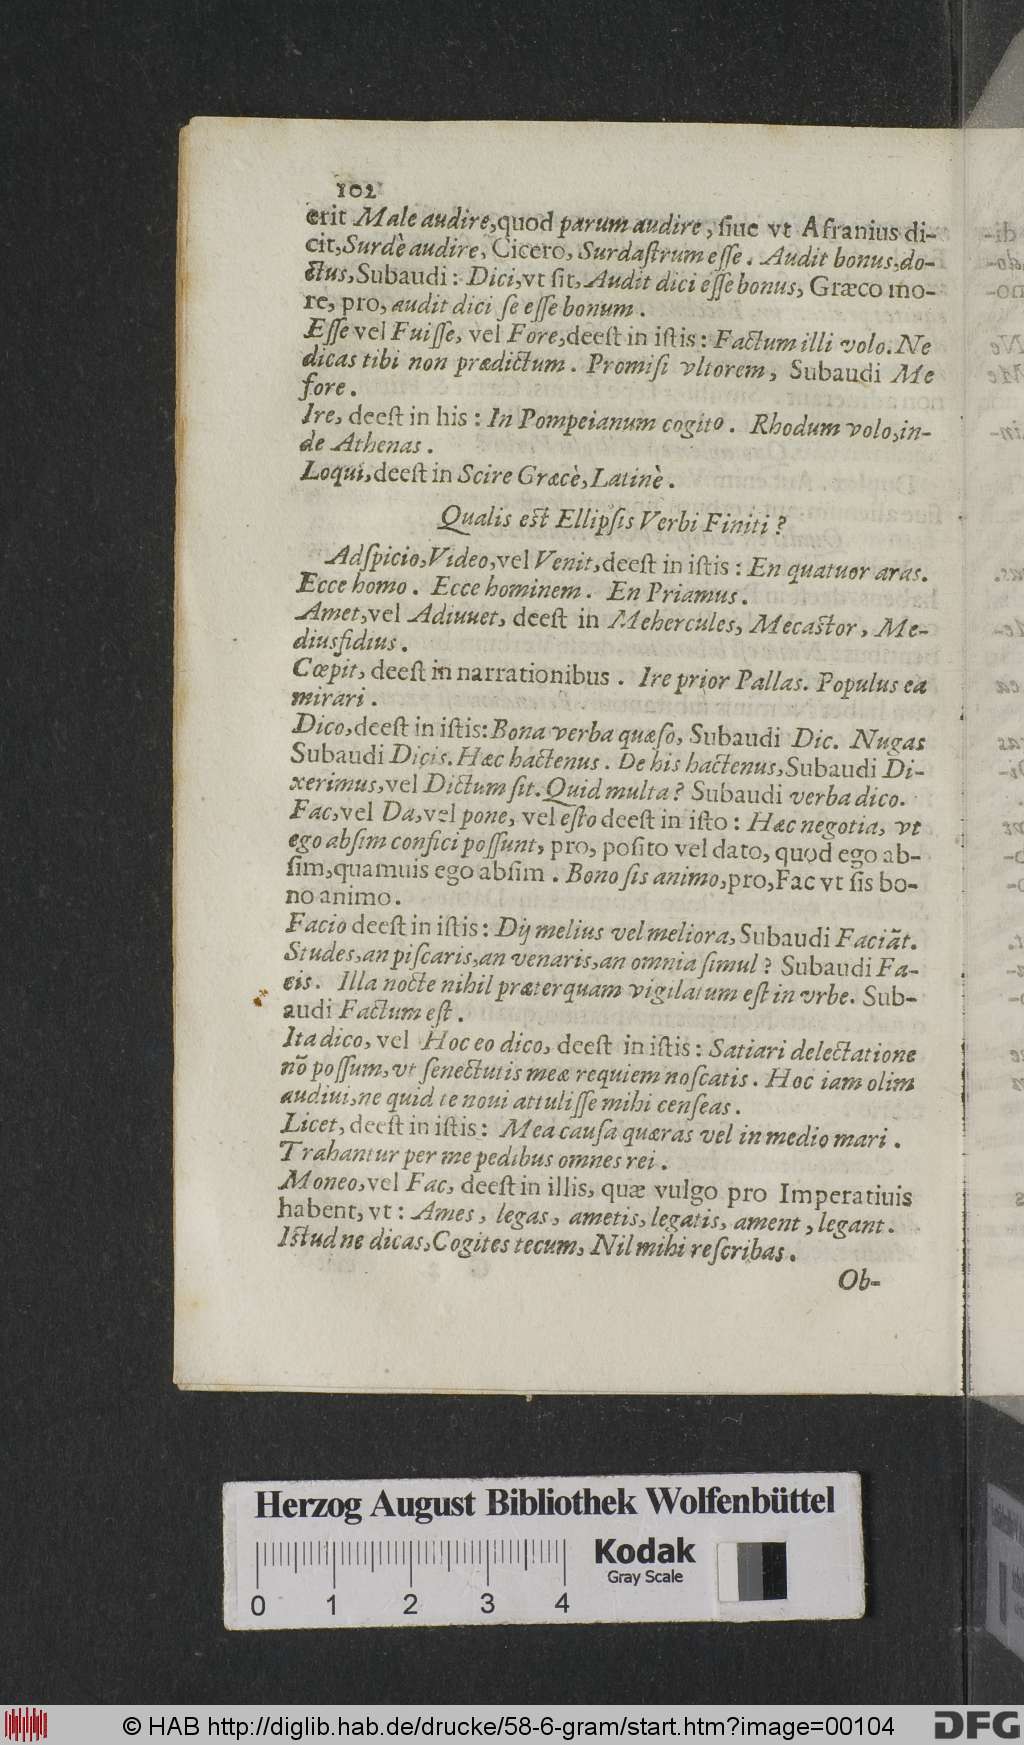 102
erit Male audire, quod parum audire, ſiue vt Afranius di-
cit, Surdè audire, Cicero, Surdaſtrum eſſe. Audit bonus, do-
ctus, Subaudi: Dici, vt ſit, Audit dici eſſe bonus, Græco mo-
re, pro, audit dici ſe eſſe bonum.
Eſſe vel Fuiſſe, vel Fore, deeſt in iſtis: Factum illi volo. Ne
dicas tibi non prædictum. Promiſi vltorem, Subaudi Me
fore.
Ire, deeſt in his: In Pompeianum cogito. Rhodum volo, in-
de Athenas.
Loqui, deeſt in Scire Græcè, Latinè.
Qualis eſt Ellipſis Verbi Finiti?
Adſpicio, Video, vel Venit, deeſt in iſtis: En quatuor aras.
Ecce homo. Ecce hominem. En Priamus.
Amet, vel Adiuuet, deeſt in Mehercules, Mecaſtor, Me-
diusfidius.
Cœpit, deeſt in narrationibus. Ire prior Pallas. Populus ea
mirari.
Dico, deeſt in iſtis: Bona verba quæſo, Subaudi Dic. Nugas
Subaudi Dicis. Hæc hactenus. De his hactenus, Subaudi Di-
xerimus, vel Dictum ſit. Quid multa? Subaudi verba dico.
Fac, vel Da, vel pone, vel eſto deeſt in iſto: Hæc negotia, vt
ego abſim confici poſſunt, pro, poſito vel dato, quod ego ab-
ſim, quamuis ego abſim. Bono ſis animo, pro, Fac vt ſis bo-
no animo.
Facio deeſt in iſtis: Dij melius vel meliora, Subaudi Faciãt.
Studes, an piſcaris, an venaris, an omnia ſimul? Subaudi Fa-
cis. Illa nocte nihil præterquam vigilatum eſt in vrbe. Sub-
audi Factum eſt.
Ita dico, vel Hoc eo dico, deeſt in iſtis: Satiari delectatione
nõ poſſum, vt ſenectutis meæ requiem noſcatis. Hoc iam olim
audiui, ne quid te noui attuliſſe mihi cenſeas.
Licet, deeſt in iſtis: Mea cauſa quæras vel in medio mari.
Trahantur per me pedibus omnes rei.
Moneo, vel Fac, deeſt in illis, quæ vulgo pro Imperatiuis
habent, vt: Ames, legas, ametis, legatis, ament, legant.
Iſtud ne dicas, Cogites tecum, Nil mihi reſcribas.
Ob-
Herzog August Bibliothek Wolfenbüttel
Kodak
Gray Scale
0 1 2 3 4
© HAB http://diglib.hab.de/drucke/58-6-gram/start.htm?image=00104
DFG